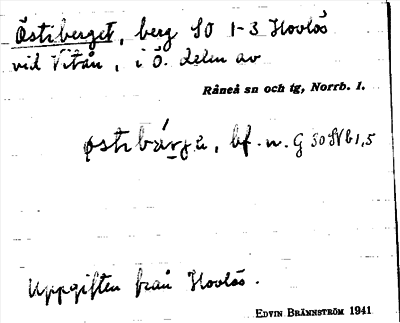 Östiberget, berg SO 1-3 Hovlös
vid Vitån, i Ö. delen av
Råneå sn och tg, Norrb. l.
bf. n. G 30 SV b 1,5
Uppgiften från Hovlös.
EDVIN BRÄNNSTRÖM 1941